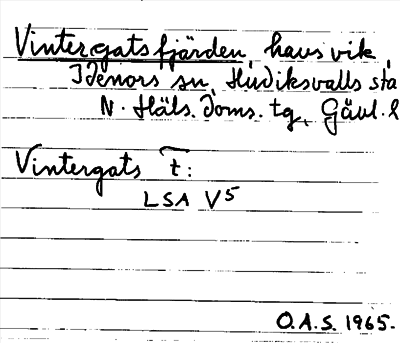 Vintergatsfjärden, havsvik,
Idenors sn, Hudiksvalls sta
N. Häls. doms. tg, Gävl. l
Vintergats t:
LSA V5
O.A.S. 1965.